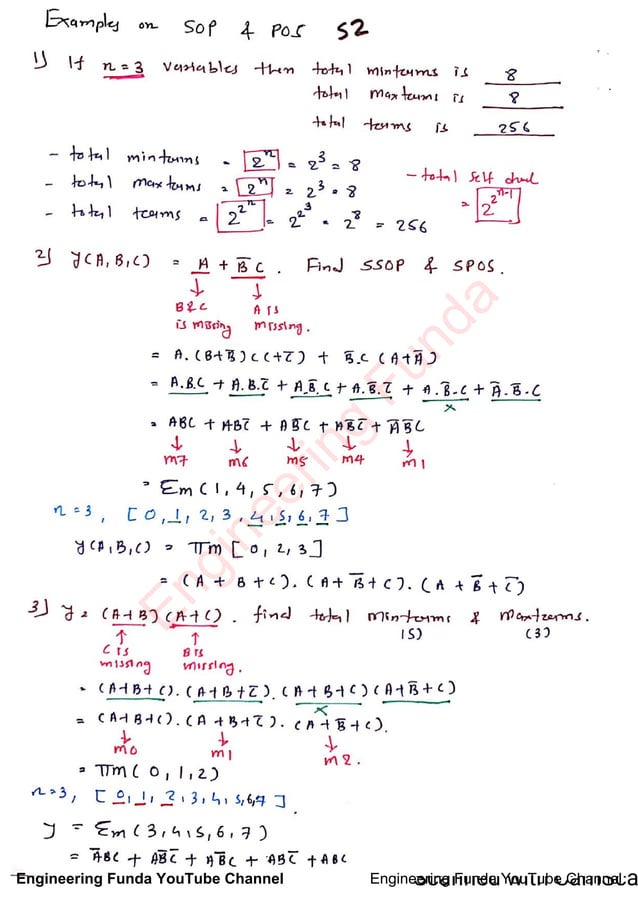 Examples on SOP & POS S2
1) If n=3 variables then total minterms is 8
total maxterms is 8
total terms is 256
- total minterms = 2ⁿ = 2³ = 8
- total maxterms = 2ⁿ = 2³ = 8
- total terms = 2^2ⁿ = 2^2³ = 2⁸ = 256
- total self dual
= 2^2ⁿ⁻¹
2) Y(A,B,C) = A + B̅C. Find SSOP & SPOS.
B&C is missing
A is missing.
= A.(B+B̅)(C+C̅) + B̅.C (A+A̅)
= A.B.C + A.B.C̅ + A.B̅.C + A.B̅.C̅ + A.B̅.C + A̅.B̅.C
×
= ABC + ABC̅ + AB̅C + AB̅C̅ + A̅B̅C
m7 m6 m5 m4 m1
= Σm(1,4,5,6,7)
n=3, [0,1,2,3,4,5,6,7]
Y(A,B,C) = πm[0,2,3]
= (A+B+C).(A+B̅+C).(A+B̅+C̅)
3) Y = (A+B)(A+C). find total minterms & maxterms.
(5) (3)
C is missing
B is missing.
= (A+B+C).(A+B+C̅).(A+B+C)(A+B̅+C)
×
= (A+B+C).(A+B+C̅).(A+B̅+C).
m0 m1 m2.
= πm(0,1,2)
n=3, [0,1,2,3,4,5,6,7].
Y = Σm(3,4,5,6,7)
= A̅BC + AB̅C̅ + AB̅C + ABC̅ + ABC
Engineering Funda
Engineering Funda YouTube Channel
Engineering Funda YouTube Channel